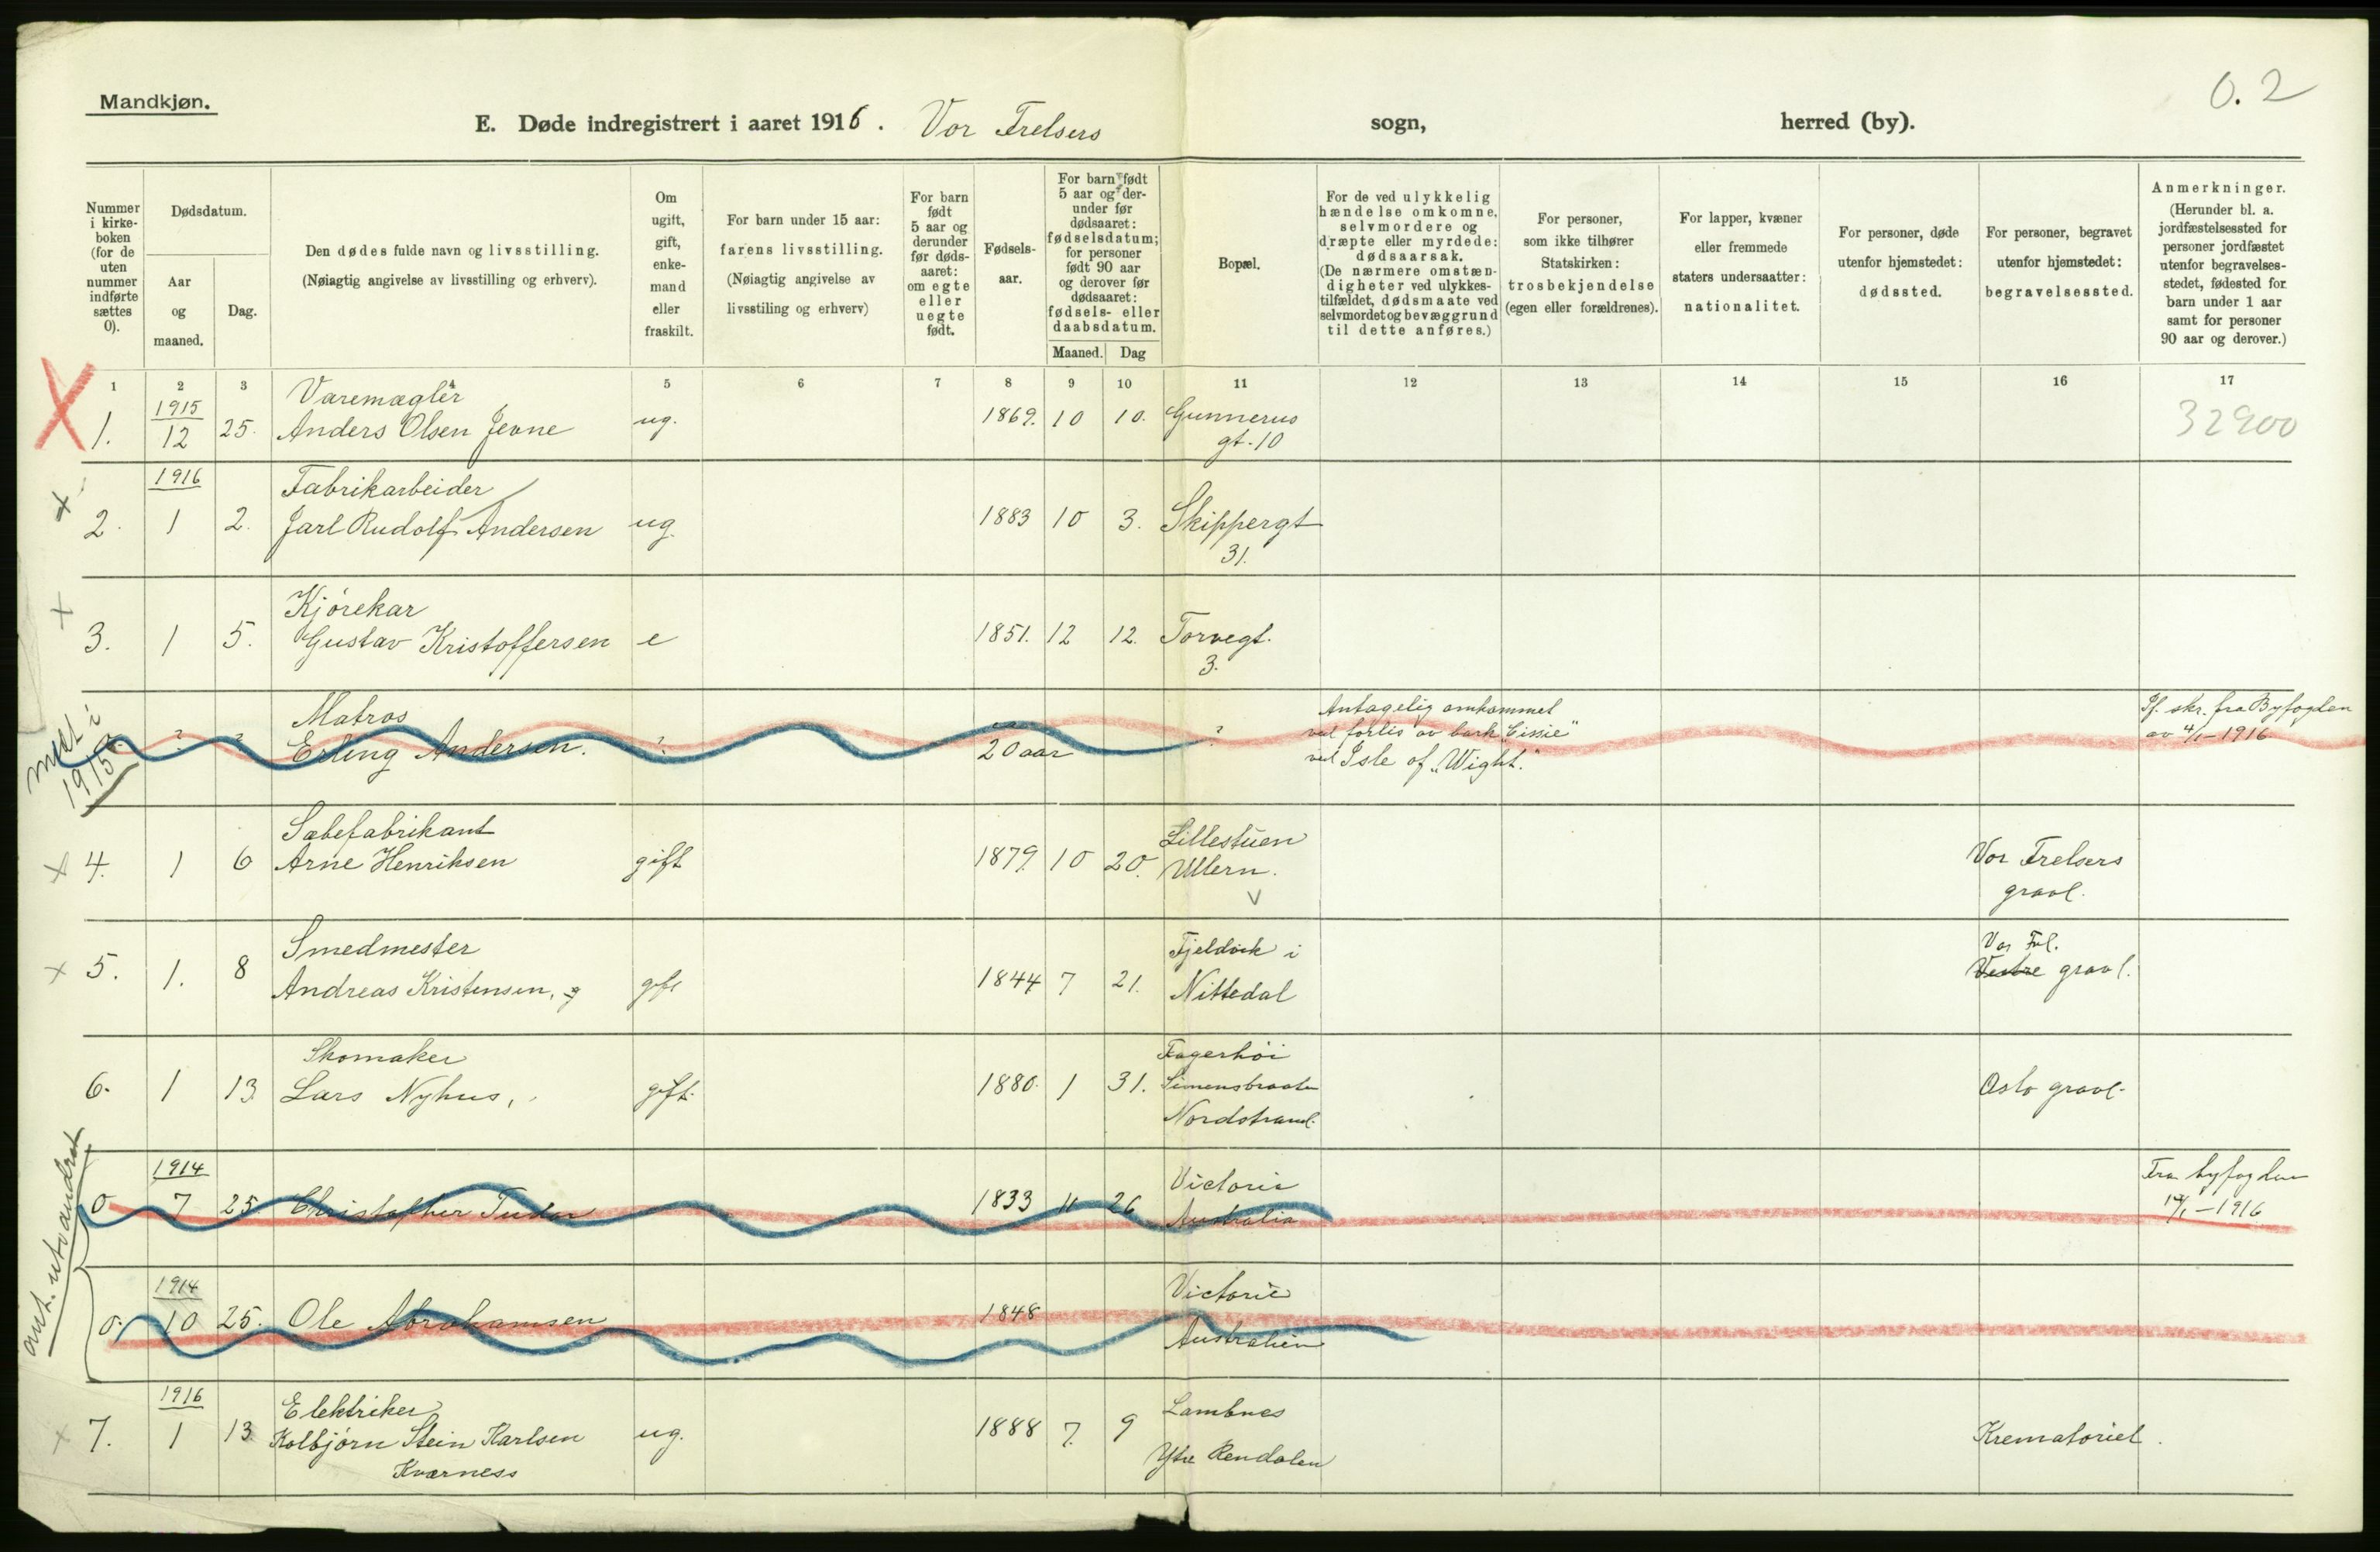 Mandkjøn.
0.2
E. Døde indregistrert i aaret 1916. Vor Frelsers sogn, herred (by).
Nummer i kirke-boken (for de uten nummer indførte sættes 0).
Dødsdatum.
Aar og maaned.
Dag.
Den dødes fulde navn og livsstilling.
(Nøiagtig angivelse av livsstilling og erhverv).
Om ugift, gift, enke-mand eller fraskilt.
For barn under 15 aar: farens livsstilling.
(Nøiagtig angivelse av livsstiling og erhverv)
For barn født 5 aar og derunder før døds-aaret: om egte eller uegte født.
Fødsels-aar.
For barn født 5 aar og der-under før dødsaaret: fødselsdatum; for personer født 90 aar og derover før dødsaaret: fødsels- eller daabsdatum.
Maaned. Dag
Bopæl.
For de ved ulykkelig hændelse omkomne, selvmordere og dræpte eller myrdede: dødsaarsak.
(De nærmere omstæn-digheter ved ulykkes-tilfældet, dødsmaate ved selvmordet og bevæggrund til dette anføres.)
For personer, som ikke tilhører Statskirken: trosbekjendelse (egen eller forældrenes).
For lapper, kvæner eller fremmede staters undersaatter: nationalitet.
For personer, døde utenfor hjemstedet: dødssted.
For personer, begravet utenfor hjemstedet: begravelsessted.
Anmerkninger.
(Herunder bl. a. jordfæstelsessted for personer jordfæstet utenfor begravelses-stedet, fødested for barn under 1 aar samt for personer 90 aar og derover.)
1 2 3 4 5 6 7 8 9 10 11 12 13 14 15 16 17
Varemægler
1915
1. 12 25. Anders Olsen Jevne ug. 1869. 10 10. Gunnerus
gt. 10
32900
1916
Fabrikarbeider
2. 1 2. Jarl Rudolf Andersen ug. 1883 10 3. Skippergt
31.
Kjørekar
3. 1 5. Gustav Kristoffersen e 1851. 12 12. Torvegt.
3.
1915
Matros
? ? Erling Andersen. ? 20 aar ?
Antagelig omkommet
ved forlis av bark
ved Isle of "Wight".
If. skr. fra Byfogden
av 4/1-1916
Sæbefabrikant
4. 1 6 Arne Henriksen gift 1879. 10 20. Lillestuen
Ullern.
Vor Frelsers
gravl.
Smedmester
5. 1. 8 Andreas Kristensen, gift 1844 7 21. Fjeldvik i
Nittedal
Vor Frl.
Vestre gravl.
Skomaker
6. 1 13. Lars Nyhus, gift. 1880. 1 31. Fagerhøi
Simensbraaten
Nordstrand.
Oslo gravl.
ant. utvandret
1914
0 7 25 Christopher Tudor 1833 11 26 Victoria
Australia
Fra byfogden
/1-1916
1914
0. 10 25. Ole Abrahamsen 1848 Victoria
Australien
1916
Elektriker
7. 1 13 Kolbjørn Stein Karlsen ug. 1888 7. 9 Lambnes
Kværness Ytre Rendalen
Krematoriet.